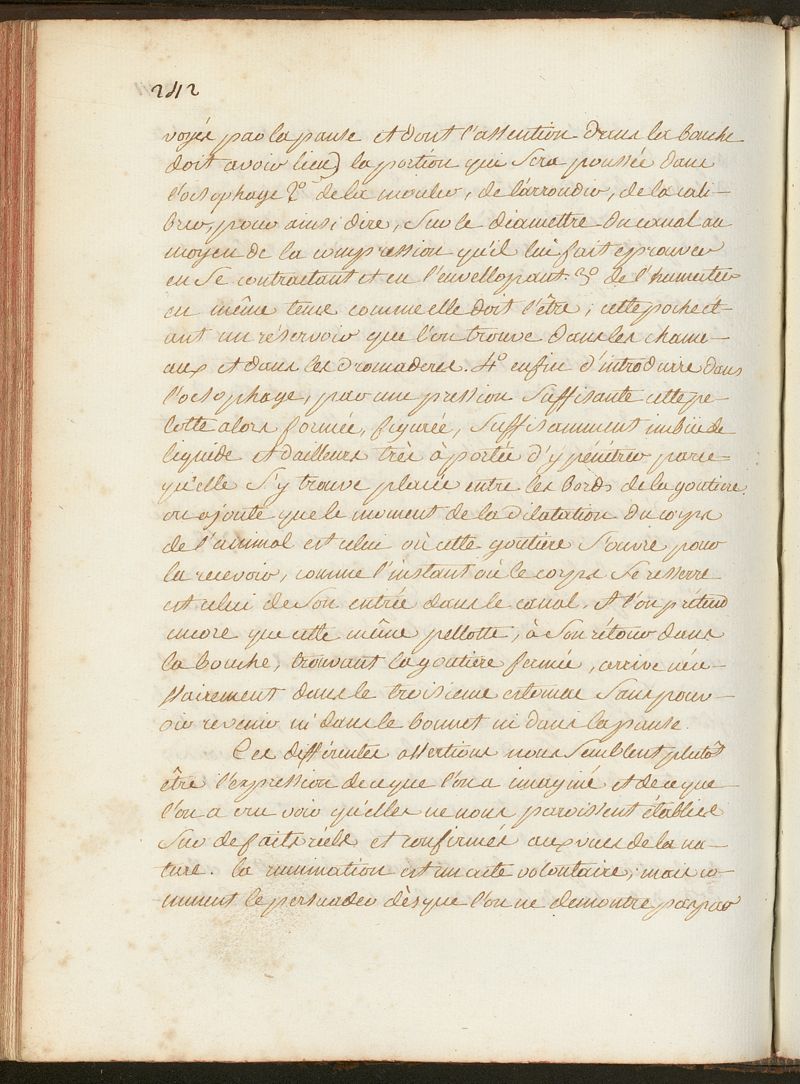 242
voyés par la panse et dont l'assention dans la bouche
doit avoir lieu) la portion qui sera poussée dans
l'œsophage 2º de la mouler, de l'arrondir, de la cali-
brer, pour ainsi dire, sur le diamettre du canal au
moyen de la compression qu'il lui fait éprouver
en se contractant et en l'envellopant. 3º de l'humecter
en même tems comme elle doit l'être, cette poche et-
ant un réservoir que l'on trouve dans les chame-
aux et dans les dromaderes. 4º enfin d'introduire dans
l'œsophage, par une pression suffisante cette pe-
lotte alors formée, figurée, suffisamment imbüe de
liquide et dailleurs très à portée d'y pénétrer parce-
qu'elle s'y trouve placée entre les bords de la goutiere.
on ajoute que le moment de la dilatation du corps
de l'animal est celui où cette goutiere s'ouvre pour
la recevoir, comme l'instant où le corps se resserre
est celui de son entrée dans le canal. et l'on prétend
encore que cette même pellotte, à son rétour dans
la bouche, trouvant la goutiere fermée, arrive néce-
ssairement dans le troisieme estomac sans pouv-
oir revenir ni dans le bonnet ni dans la panse.
Ces différentes assertions nous semblent plutôt
être l'expression de ce que l'on a imaginé et de ce que
l'on a cru voir qu'elles ne nous paroissent établies
sur de faits réels et confirmés aux vues de la na-
ture. la rumination est un acte volontaire, mais co-
mment le persuader dès que l'on ne demontre pas par